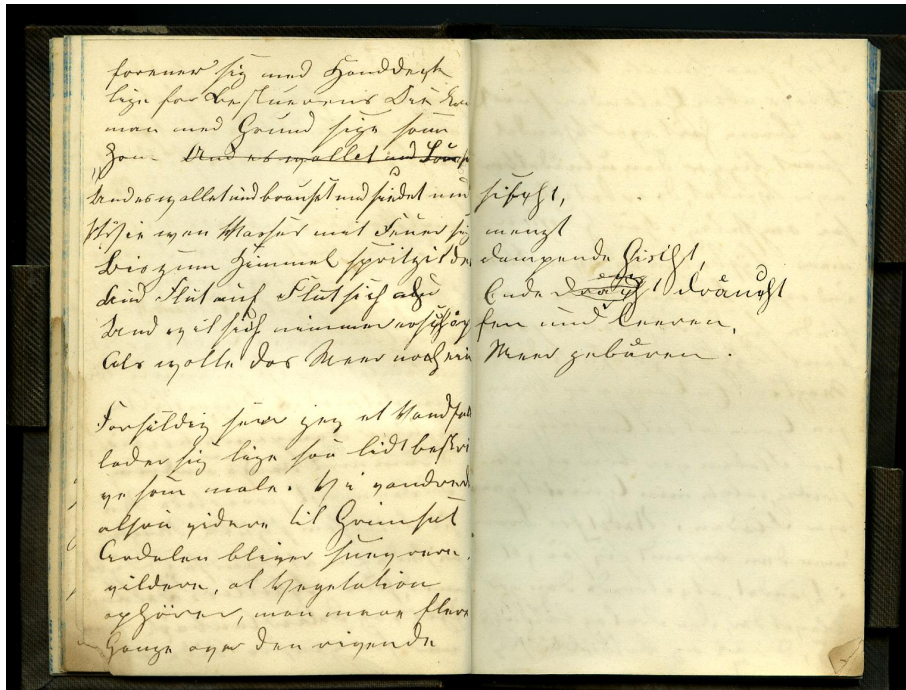 forener sig med Handdegt
lige for Beskuerens Øie kan
man med Grund sige som
Und es wallet und
Und es wallet und brauset und siedet und zischt,
Wie wan Wasser mit Feuer sig mengt
Bis zum Himmel spritzit de dampende Gischt,
Und Flut auf Flut sich ahn Ende dräucht
Und wil sich nimmer erschöpfen und leeren,
Als wolle das Meer noch ein Meer gebären.
Forseildig saa jeg et Vandfald
lader sig lige saa lidt beskri
ve som male. Vi vandrede
altsaa videre til Grimsel
Aardalen bliver snevrere,
vildere, al Vegetation
ophörer, man maae flere
Gange over den rivende